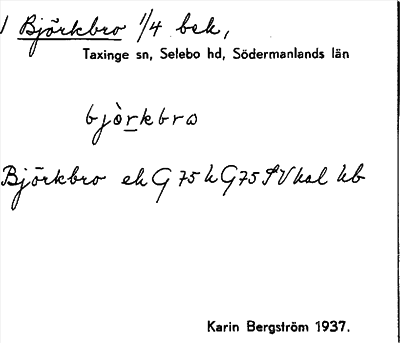 1 Björkbro 1/4 bek,
Taxinge sn, Selebo hd, Södermanlands län
bjòrkbro
Björkbro ek G 75 h G75 hb
Karin Bergström 1937.